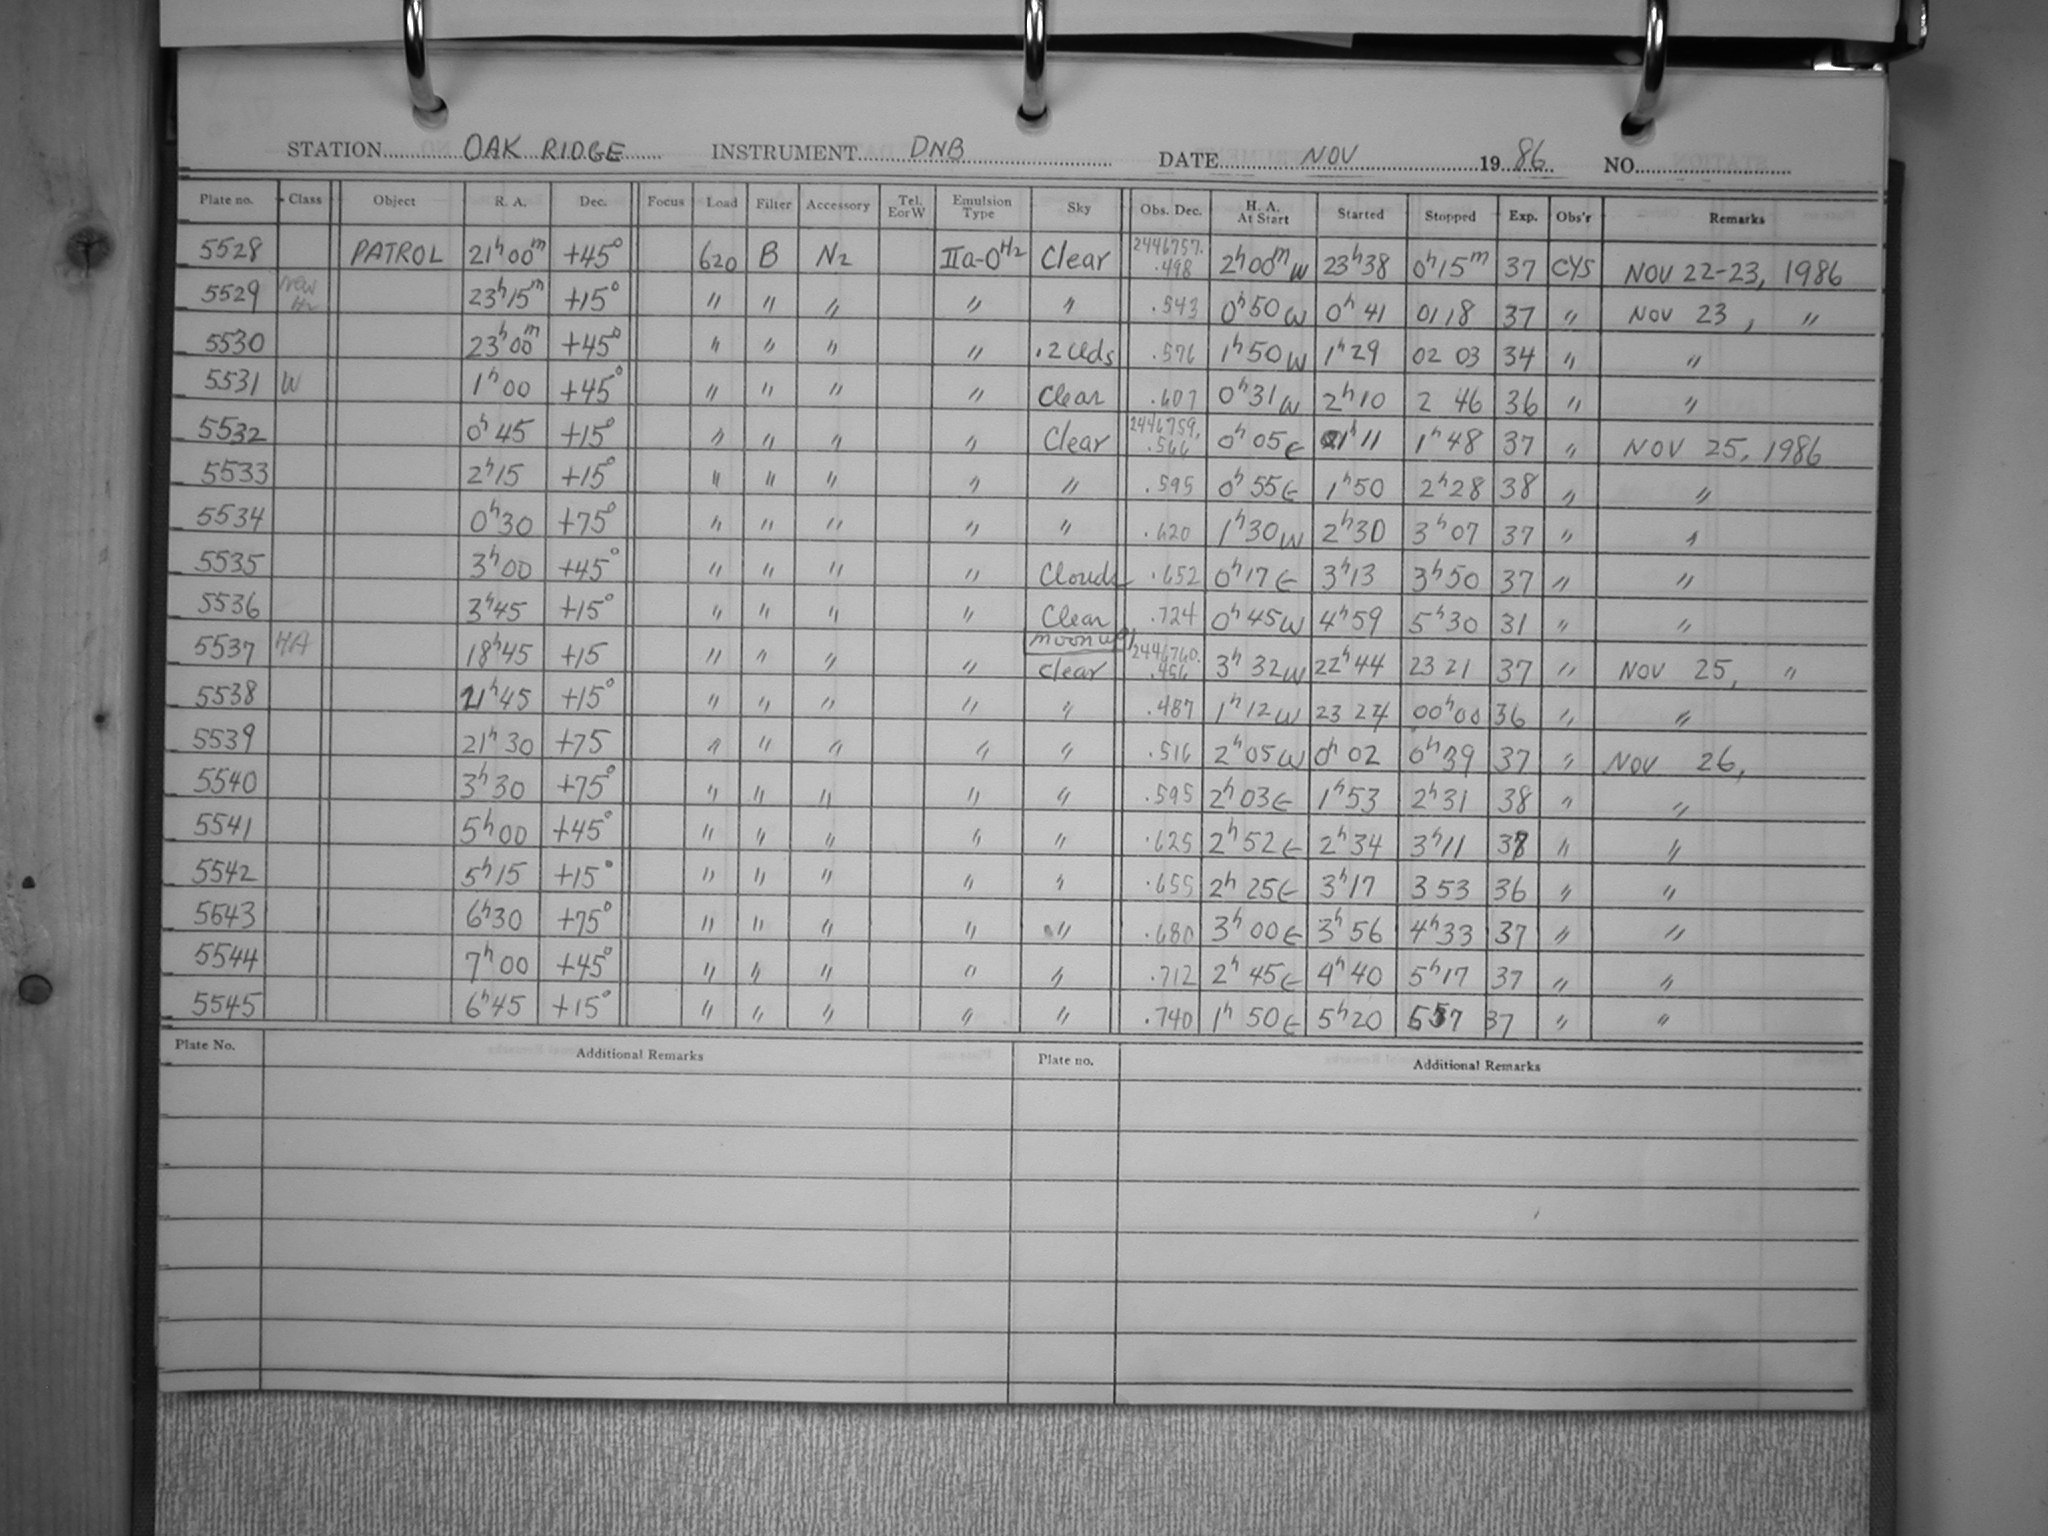 STATION OAK RIDGE INSTRUMENT DNB DATE NOV 1986 NO.
Plate no. Class Object R. A. Dec. Focus Load Filter Accessory Tel. E or W Emulsion Type Sky Obs. Dec. H. A. At Start Started Stopped Exp. Obs'r Remarks
5528 PATROL 21h00m +45° 620 B N2 IIa-O H2 Clear 2446757.498 2h00m W 23h38 0h15m 37 CYS NOV 22-23, 1986
5529 New H2 23h15m +15° " " " " " .543 0h50 W 0h41 0118 37 " NOV 23, "
5530 23h00m +45° " " " " .2 Clds .576 1h50 W 1h29 02 03 34 " "
5531 W 1h00 +45° " " " " Clear .607 0h31 W 2h10 2 46 36 " "
5532 0h45 +15° " " " " Clear 2446759.566 0h05 E 1h11 1h48 37 " NOV 25, 1986
5533 2h15 +15° " " " " " .595 0h55 E 1h50 2h28 38 " "
5534 0h30 +75° " " " " " .620 1h30 W 2h30 3h07 37 " "
5535 3h00 +45° " " " " Clouds .652 0h17 E 3h13 3h50 37 " "
5536 3h45 +15° " " " " Clear .724 0h45 W 4h59 5h30 31 " "
moon up
5537 HA 18h45 +15 " " " " clear 2446760.456 3h32 W 22h44 23 21 37 " NOV 25, "
5538 21h45 +15° " " " " " .487 1h12 W 23 24 00h00 36 " "
5539 21h30 +75 " " " " " .516 2h05 W 0h02 0h39 37 " NOV 26,
5540 3h30 +75° " " " " " .595 2h03 E 1h53 2h31 38 " "
5541 5h00 +45° " " " " " .625 2h52 E 2h34 3h11 38 " "
5542 5h15 +15° " " " " " .655 2h25 E 3h17 3 53 36 " "
5543 6h30 +75° " " " " " .680 3h00 E 3h56 4h33 37 " "
5544 7h00 +45° " " " " " .712 2h45 E 4h40 5h17 37 " "
5545 6h45 +15° " " " " " .740 1h50 E 5h20 557 37 " "
Plate No. Additional Remarks Plate no. Additional Remarks